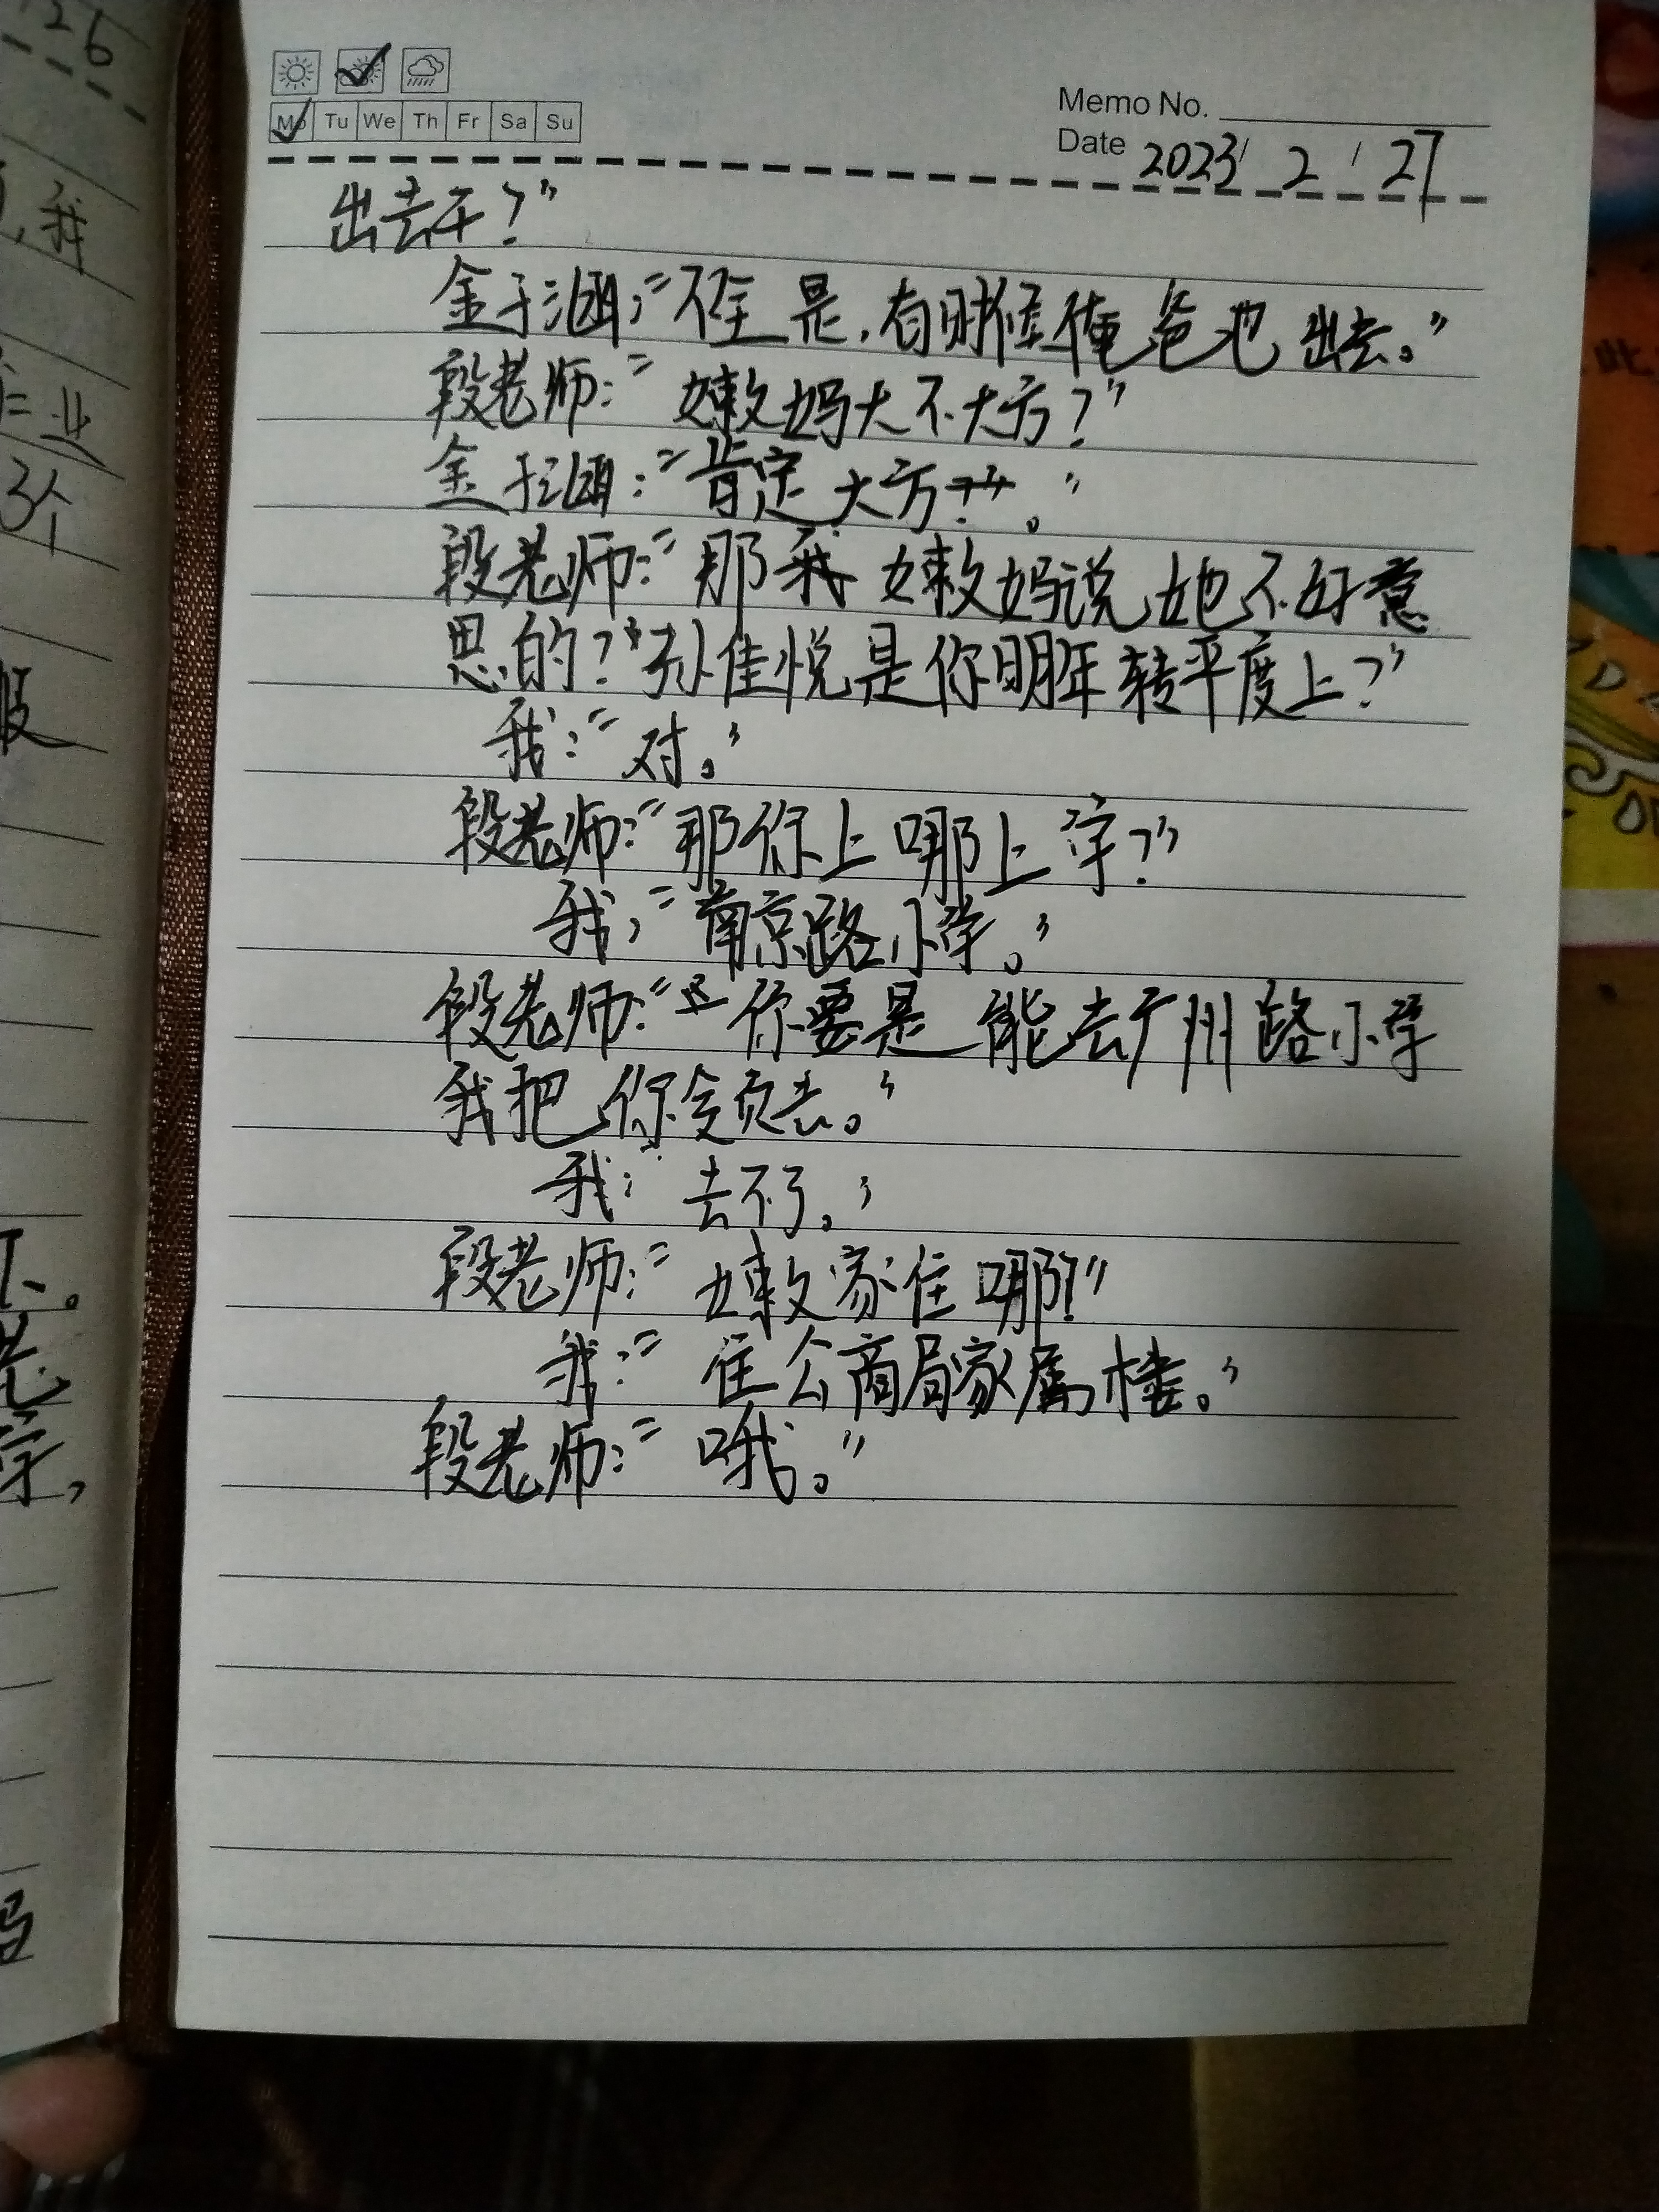 26
Mo Tu We Th Fr Sa Su
Memo No.
Date 2023/ 2 / 27
出去干?”
金于涵:“不全是,有时候俺爸也出去。”
段老师:“嫩妈大不大方?”
金于涵:“肯定大方。”
段老师:“那嫩妈说她不好意
思的?”孙佳悦是你明年转平度上?”
我:“对。”
段老师:“那你上哪上学?”
我:“南京路小学。”
段老师:“你要是能去广州路小学
我把你领去。”
我:“去不了。”
段老师:“嫩家住哪?”
我:“住公商局家属楼。”
段老师:“哦。”
我
业
3个
。
学,